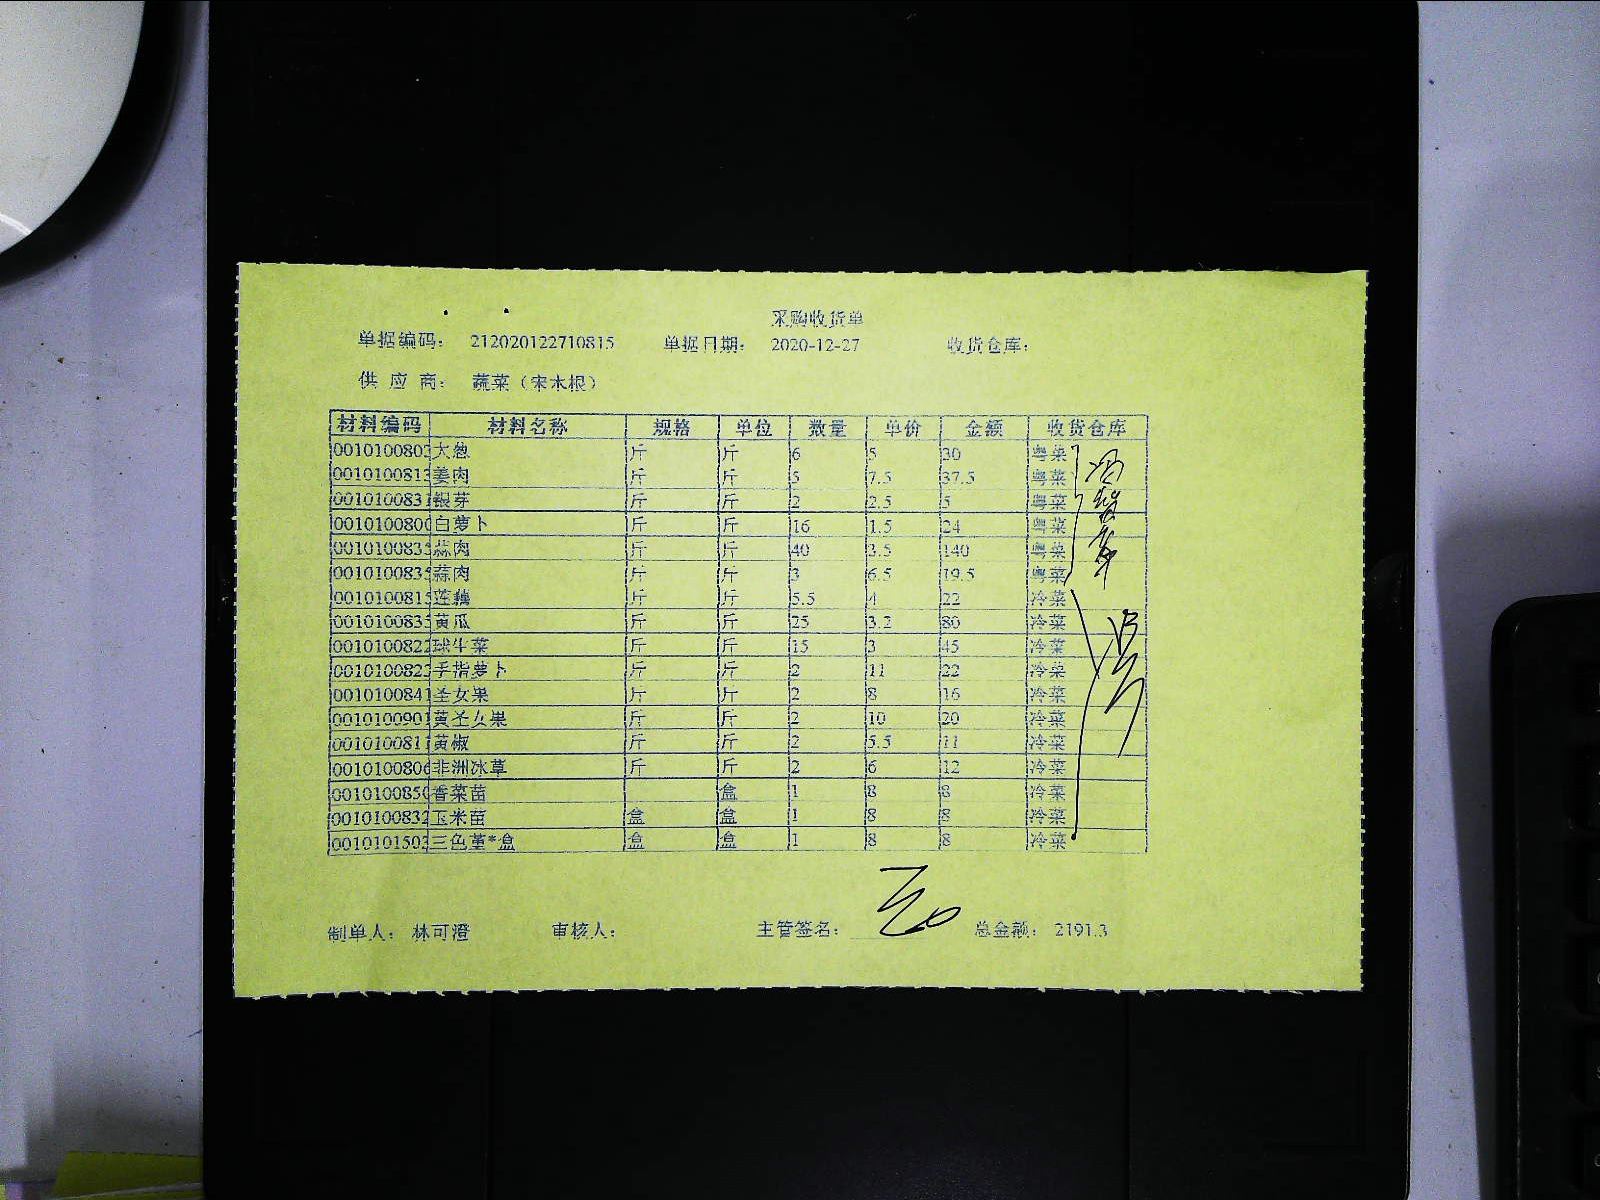 采购收货单
单据编码： 212020122710815 单据日期： 2020-12-27 收货仓库：
供 应 商： 蔬菜（宋木根）
材料编码 材料名称 规格 单位 数量 单价 金额 收货仓库
0010100802 大葱 斤 斤 6 5 30 粤菜
0010100813 姜肉 斤 斤 5 7.5 37.5 粤菜
0010100831 银芽 斤 斤 2 2.5 5 粤菜
0010100800 白萝卜 斤 斤 16 1.5 24 粤菜
0010100833 蒜肉 斤 斤 40 3.5 140 粤菜
0010100835 蒜肉 斤 斤 3 6.5 19.5 粤菜
0010100815 莲藕 斤 斤 5.5 4 22 冷菜
0010100835 黄瓜 斤 斤 25 3.2 80 冷菜
0010100822 球生菜 斤 斤 15 3 45 冷菜
0010100823 手指萝卜 斤 斤 2 11 22 冷菜
0010100841 圣女果 斤 斤 2 8 16 冷菜
0010100901 黄圣女果 斤 斤 2 10 20 冷菜
0010100811 黄椒 斤 斤 2 5.5 11 冷菜
0010100806 非洲冰草 斤 斤 2 6 12 冷菜
0010100850 香菜苗 盒 1 8 8 冷菜
0010100832 玉米苗 盒 盒 1 8 8 冷菜
0010101503 三色堇*盒 盒 盒 1 8 8 冷菜
制单人： 林可澄 审核人： 主管签名： 总金额： 2191.3